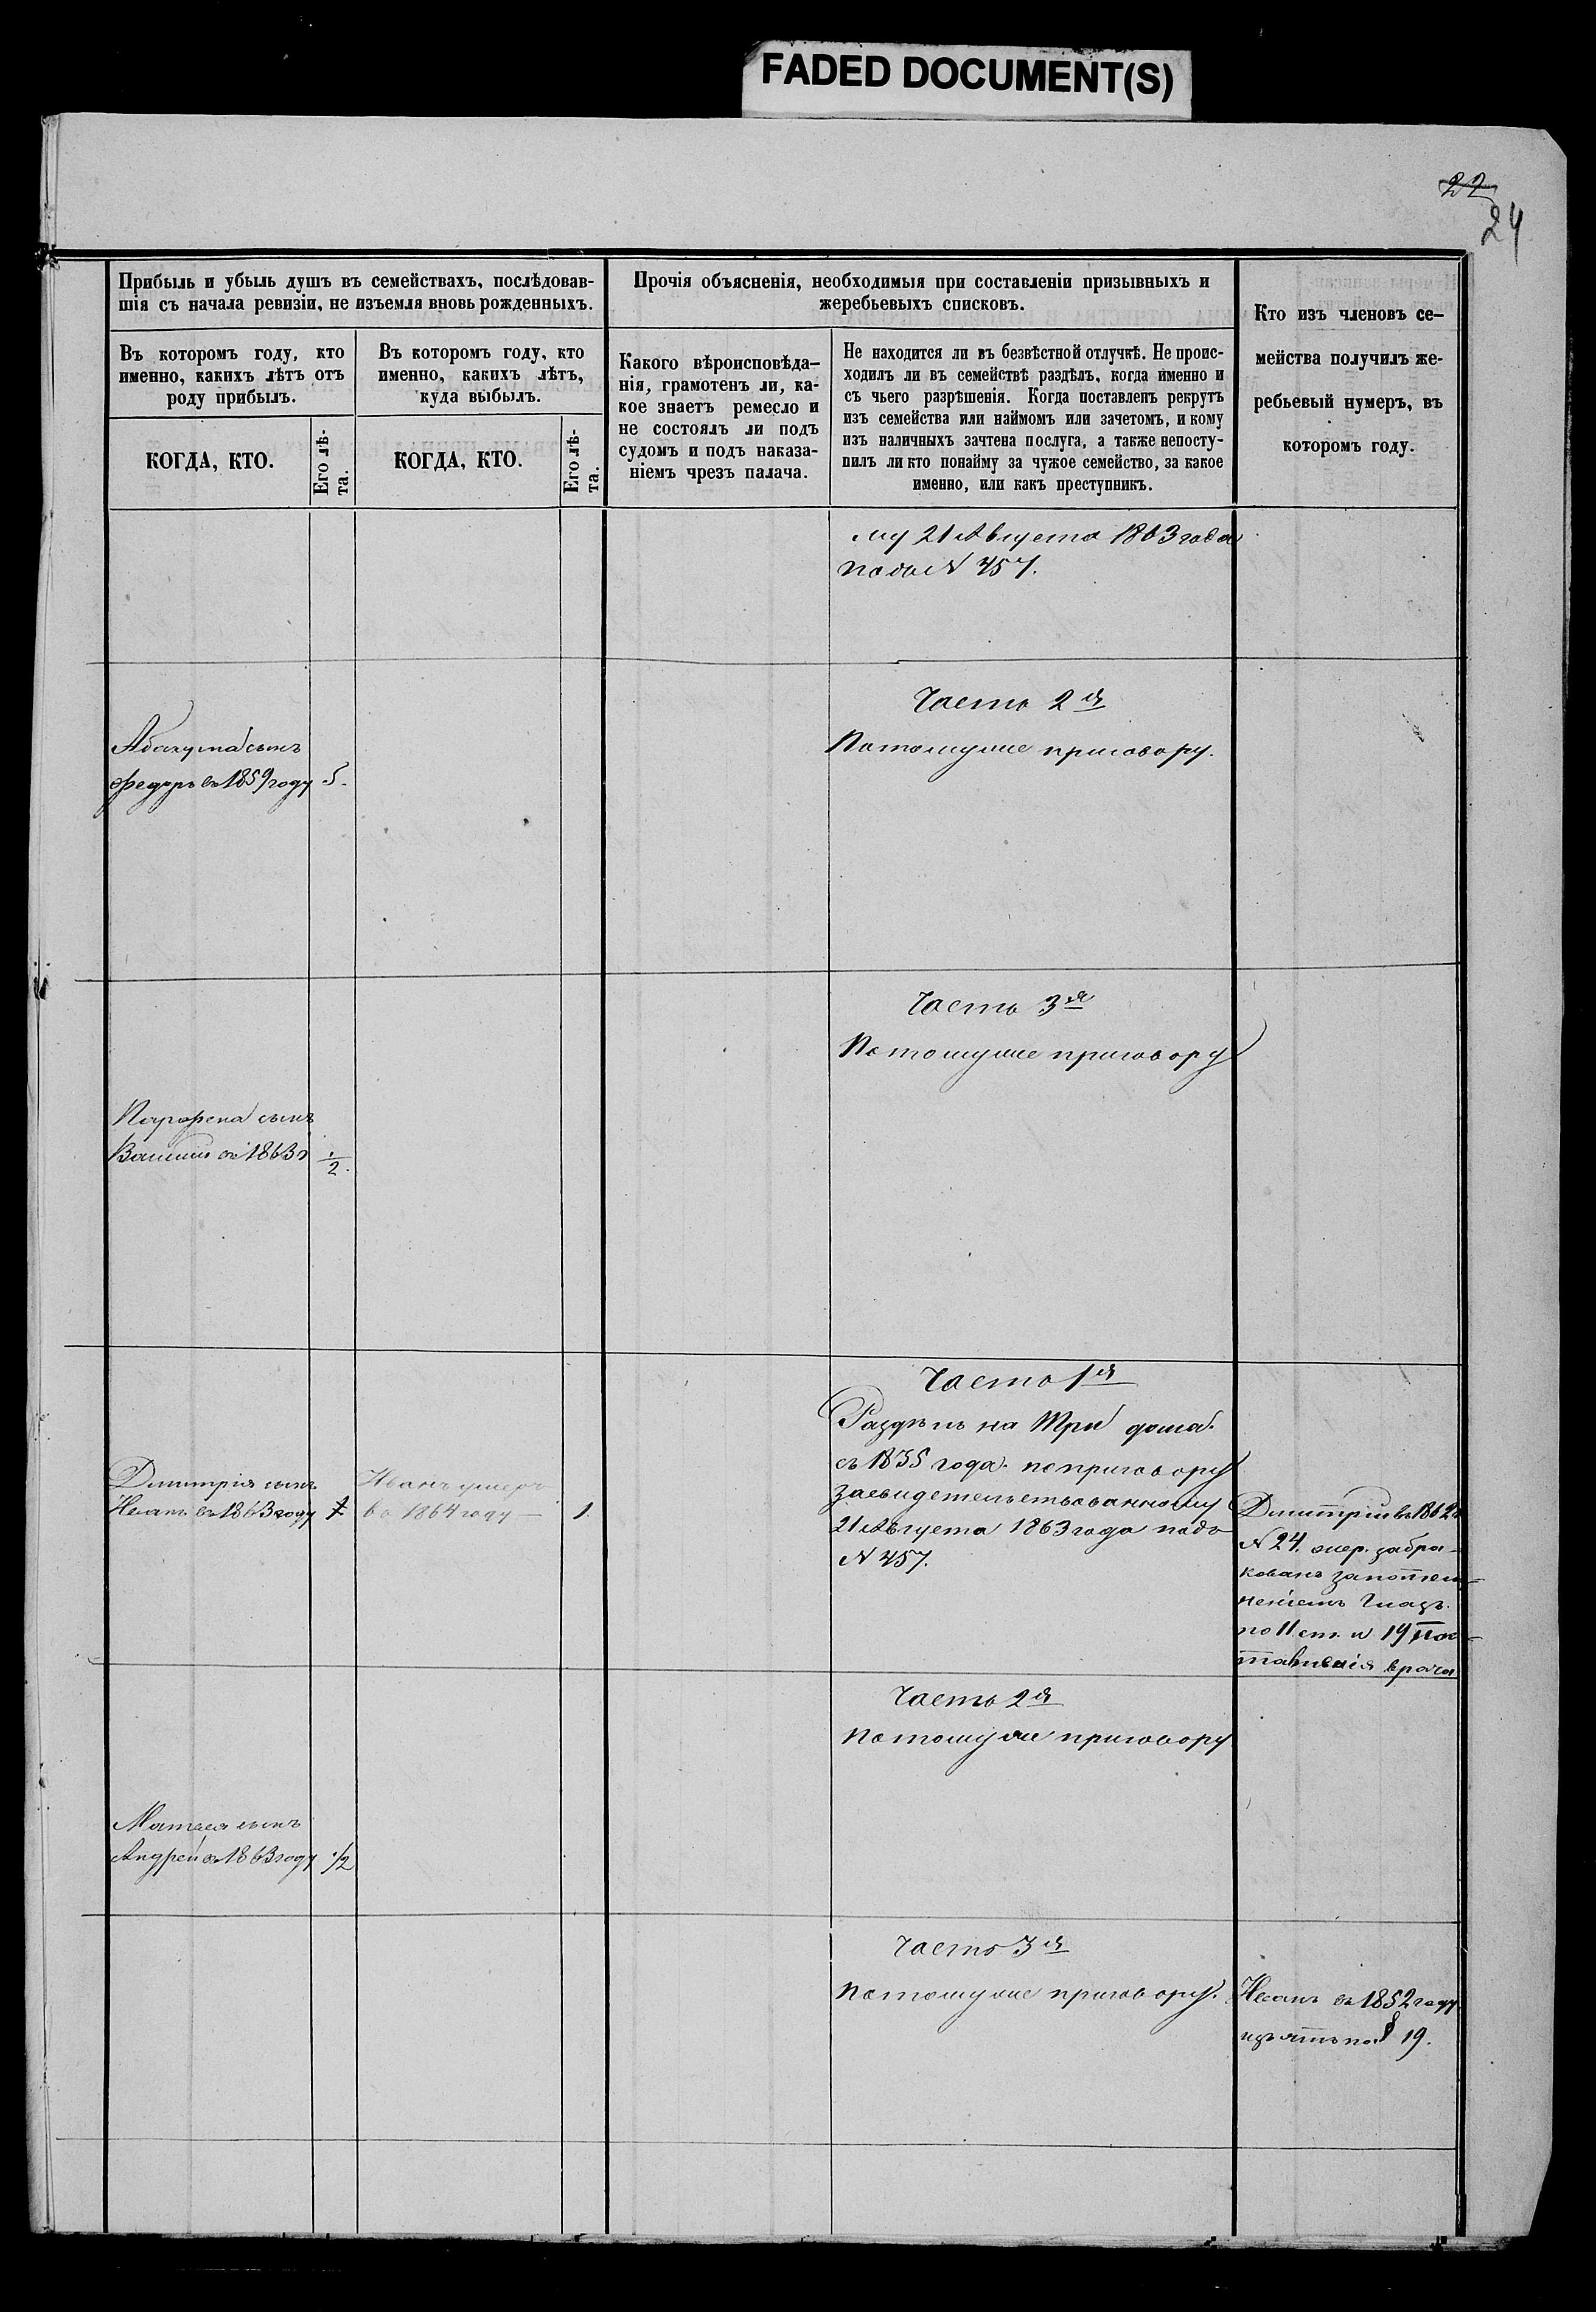 FADED DOCUMENT(S)
22
24
Прибыль и убыль душъ въ семействахъ, послѣдовав-
шія съ начала ревизіи, не изъемля вновь рожденныхъ.
Въ которомъ году, кто
именно, какихъ лѣтъ отъ
роду прибылъ.
КОГДА, КТО.
Его лѣ-
та.
Въ которомъ году, кто
именно, какихъ лѣтъ,
куда выбылъ.
КОГДА, КТО.
Его лѣ-
та.
Прочія объясненія, необходимыя при составленіи призывныхъ и
жеребьевыхъ списковъ.
Какого вѣроисповѣда-
нія, грамотенъ ли, ка-
кое знаетъ ремесло и
не состоялъ ли подъ
судомъ и подъ наказа-
ніемъ чрезъ палача.
Не находится ли въ безвѣстной отлучкѣ. Не проис-
ходилъ ли въ семействѣ раздѣлъ, когда именно и
съ чьего разрѣшенія. Когда поставленъ рекрутъ
изъ семейства или наймомъ или зачетомъ, и кому
изъ наличныхъ зачтена послуга, а также непосту-
пилъ ли кто понайму за чужое семейство, за какое
именно, или какъ преступникъ.
Кто изъ членовъ се-
мейства получилъ же-
ребьевый нумеръ, въ
которомъ году.
му 21 Августа 1863 года
подъ N 457.
Часть 2я
Потомуже приговору.
Абакума сынъ
Федоръ въ 1859 году 5.
Часть 3я
Потомуже приговору
Парфена сынъ
въ 1863 1/2.
Часть 1я
Раздѣлъ на три дома
съ 1835 года. по приговору
засвидетельствованному
21 Августа 1863 года подъ
N 457.
Дмитрія сынъ
Иванъ въ 1863 году 1
Иванъ умеръ
въ 1864 году — 1.
Дмитрій въ 1862
N 24. жер. забра-
кованъ
нениемъ глазъ.
по 11 ст. и 19 Нас-
тавленія врача
Часть 2я
Потому же приговору
Матвея сынъ
Андрей въ 1863 году 1/2
Часть 3я
Потомуже приговору.
Иванъ въ 1852 году
изъятъ по § 19.